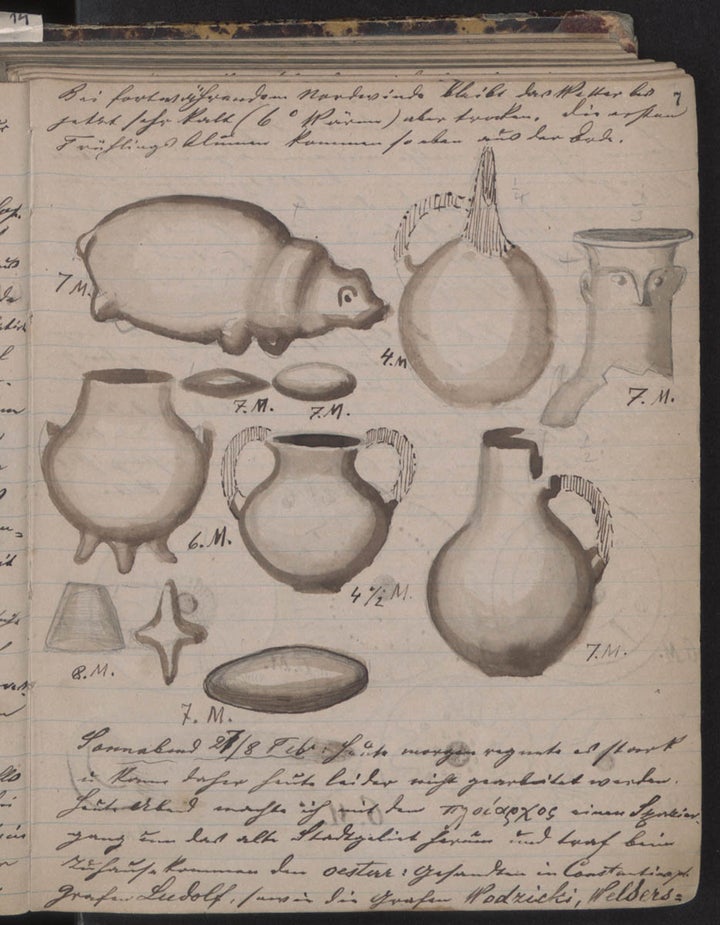 14
7
Bei fortwährendem Nordwinde bleibt das Wetter bis
jetzt sehr kalt (6° Wärme) aber trocken. Die ersten
Frühlings blumen kommen so eben aus der Erde.
1/4
7 M.
4. M
7. M.
7. M.
7. M.
1/2
6. M.
4 1/2 M.
7. M.
8. M.
7. M.
Sonnabend 27/8 Feb. Heute morgen regnete es stark
u kann daher heute leider nicht gearbeitet werden.
Heute Abend machte ich mit dem πλοίαρχος einen Spazier-
gang um das alte Stadtgebiet herum und traf beim
zuhausekommen den oesterr: Gesandten in Constantinopel
Grafen Ludolf, sowie die Grafen Wodzicki, Welsers=